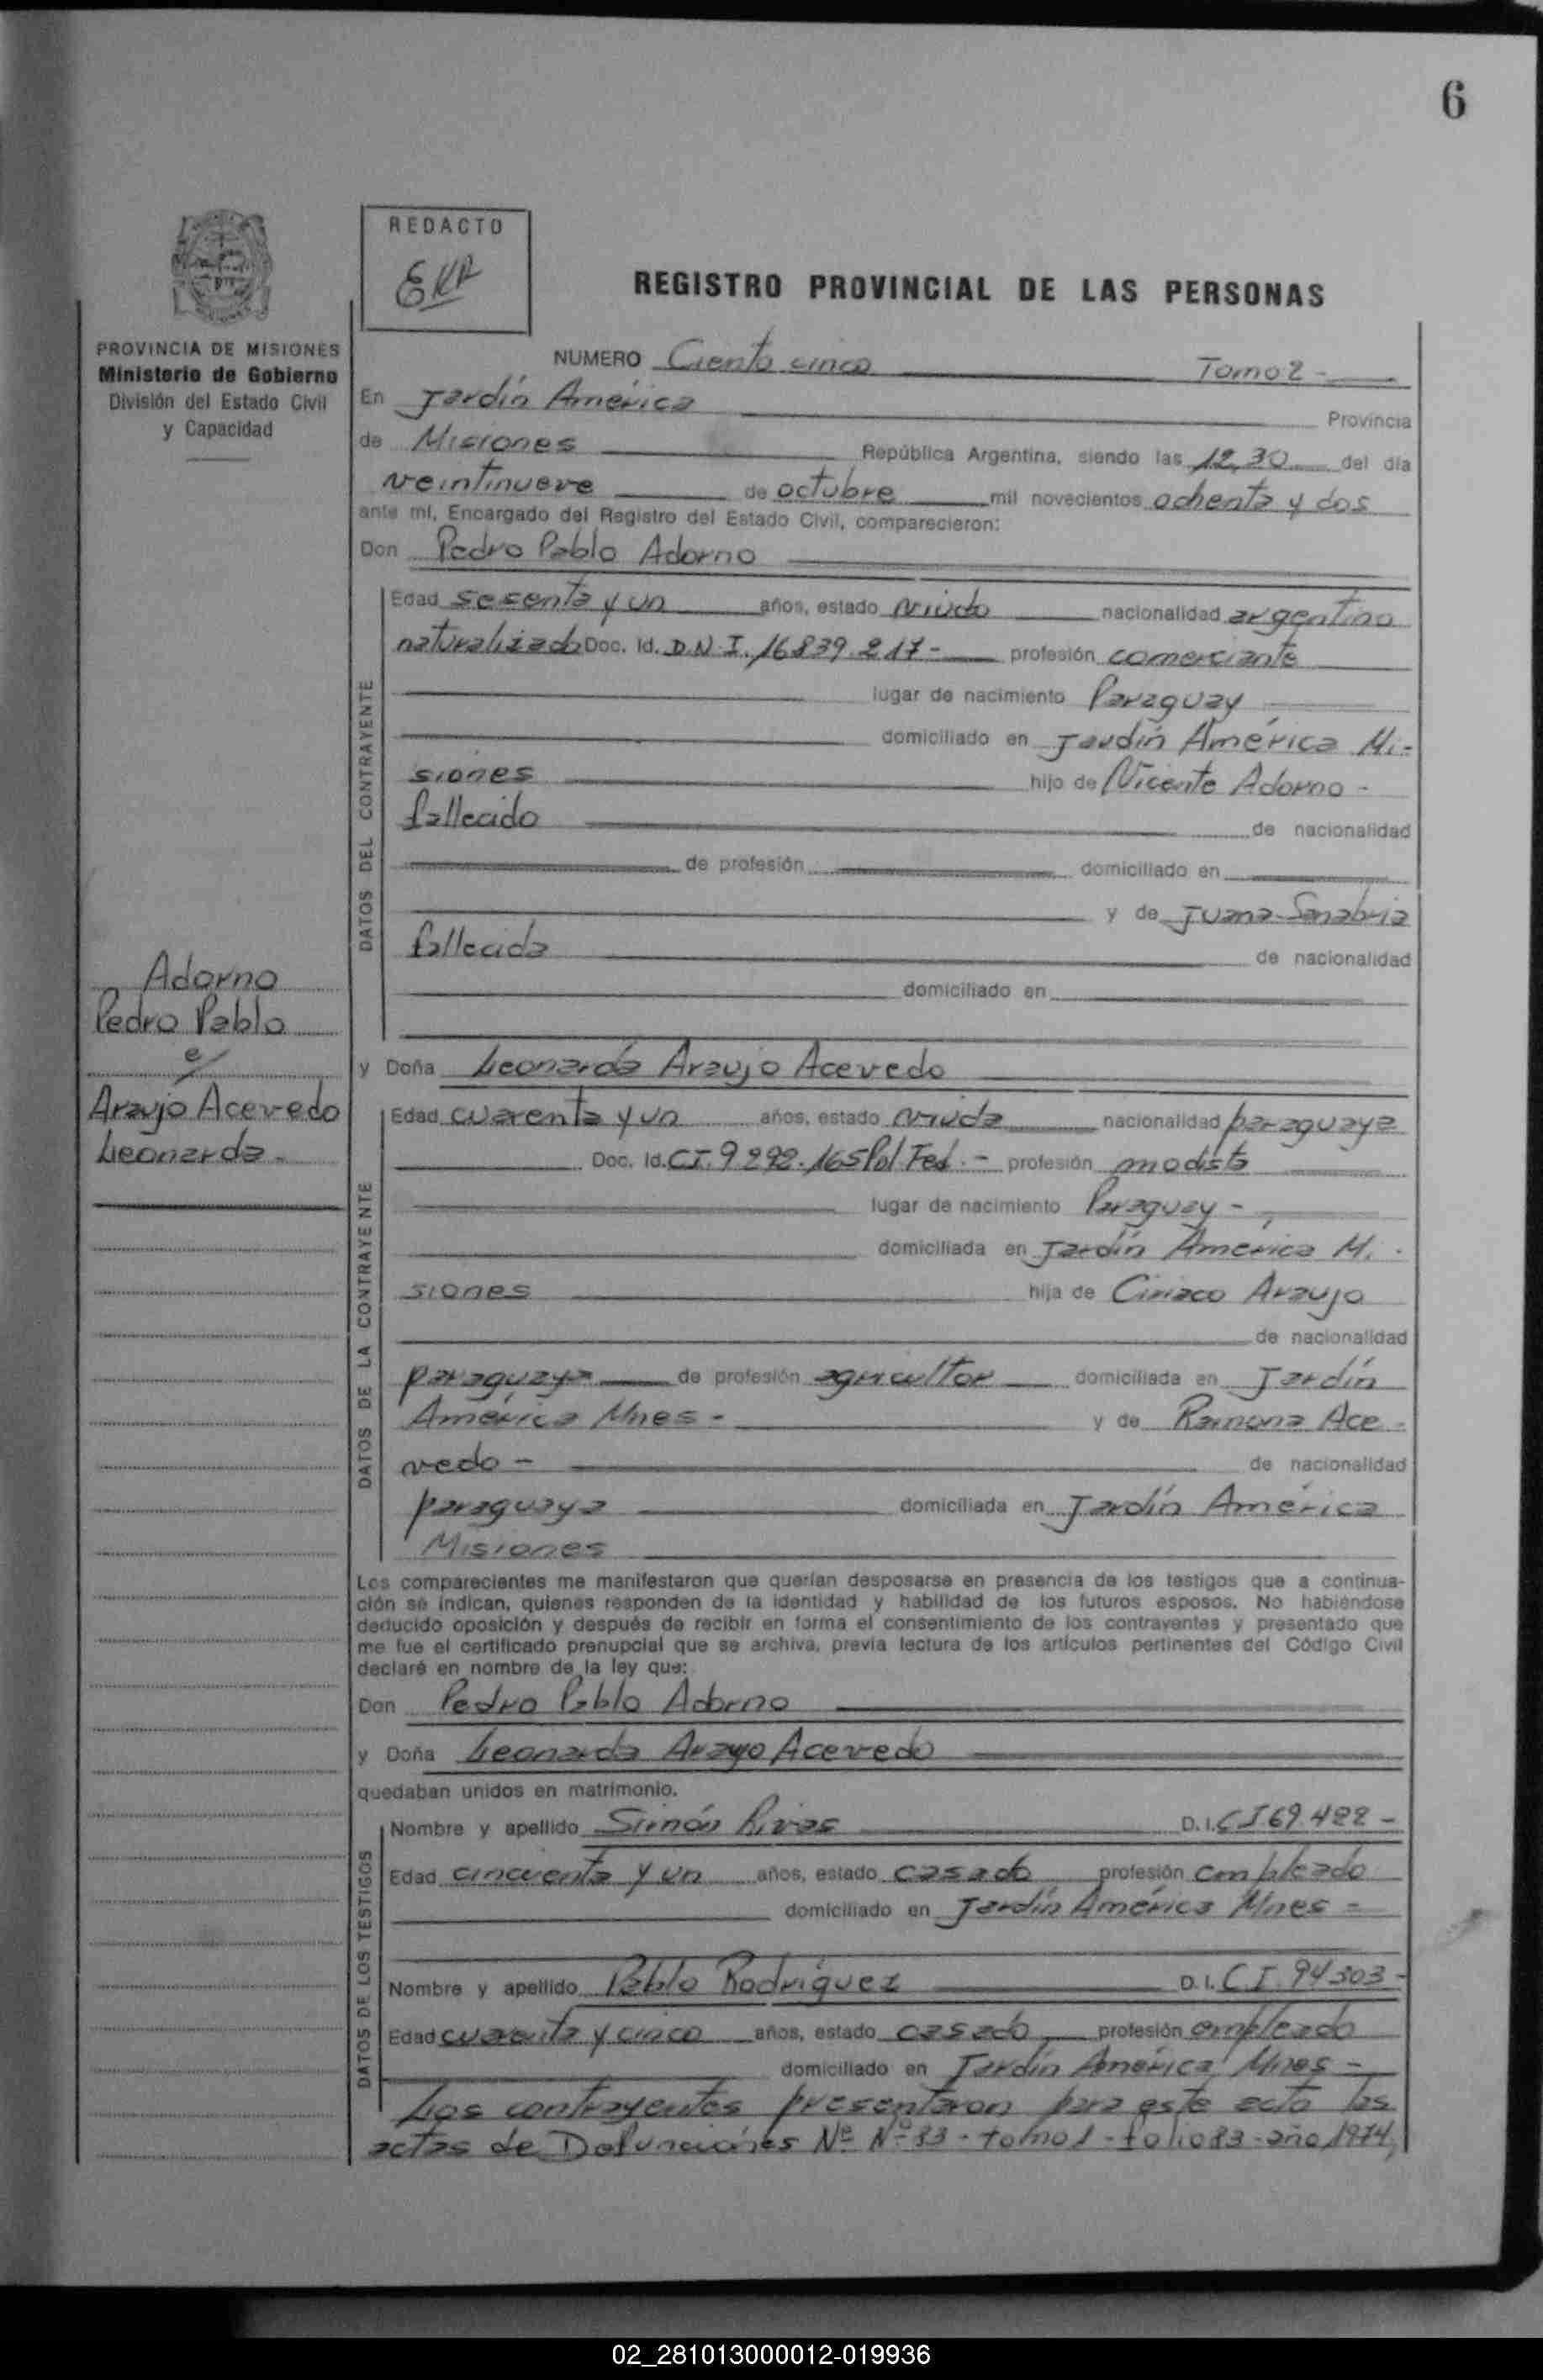 6
REDACTO
REGISTRO PROVINCIAL DE LAS PERSONAS
PROVINCIA DE MISIONES
Ministerio de Gobierno
División del Estado Civil
y Capacidad
NUMERO Ciento cinco Tomo 2 -
En Jardín América Provincia
de Misiones República Argentina, siendo las 12,30 del día
veintinueve de octubre mil novecientos ochenta y dos
ante mí, Encargado del Registro del Estado Civil, comparecieron:
Don Pedro Pablo Adorno
DATOS DEL CONTRAYENTE
Edad sesenta y un años, estado viudo nacionalidad argentino
naturalizado Doc. Id. D.N.I. 16839.217 - profesión comerciante
lugar de nacimiento Paraguay
domiciliado en Jardín América Mi-
siones hijo de Vicente Adorno -
fallecido de nacionalidad
de profesión domiciliado en
y de Juana Sanabria
fallecida de nacionalidad
domiciliado en
Adorno
Pedro Pablo
c/
Araujo Acevedo
Leonarda -
y Doña Leonarda Araujo Acevedo
DATOS DE LA CONTRAYENTE
Edad cuarenta y un años, estado viuda nacionalidad paraguaya
Doc. Id. CI. 9292.165 Pol Fed. - profesión modista
lugar de nacimiento Paraguay -
domiciliada en Jardín América Mi-
siones hija de Ciriaco Araujo
de nacionalidad
paraguaya de profesión agricultor domiciliada en Jardín
América Mnes - y de Ramona Ace-
vedo - de nacionalidad
paraguaya domiciliada en Jardín América
Misiones
Los comparecientes me manifestaron que querían desposarse en presencia de los testigos que a continua-
ción se indican, quienes responden de la identidad y habilidad de los futuros esposos. No habiéndose
deducido oposición y después de recibir en forma el consentimiento de los contrayentes y presentado que
me fue el certificado prenupcial que se archiva, previa lectura de los artículos pertinentes del Código Civil
declaré en nombre de la ley que:
Don Pedro Pablo Adorno
y Doña Leonarda Araujo Acevedo
quedaban unidos en matrimonio.
DATOS DE LOS TESTIGOS
Nombre y apellido Simón Rivas D.I. CI 69.422 -
Edad cincuenta y un años, estado casado profesión empleado
domiciliado en Jardín América Mnes -
Nombre y apellido Pablo Rodríguez D.I. C I. 94303 -
Edad cuarenta y cinco años, estado casado profesión empleado
domiciliado en Jardín América Mnes -
Los contrayentes presentaron para este acto las
actas de Defunciones Nº Nº 83 - tomo 1 - folio 83 - año 1974,
02_281013000012-019936